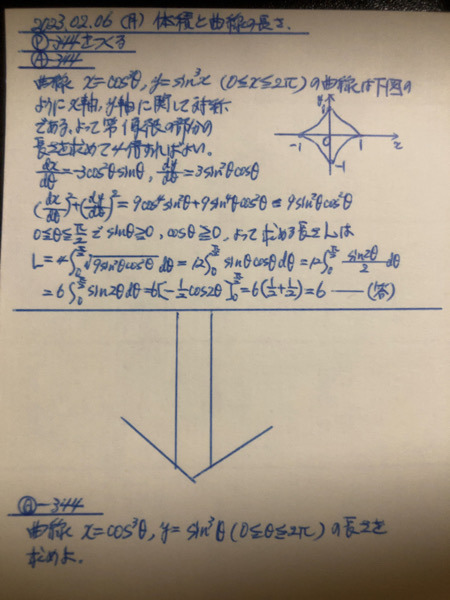 2023.02.06 (月) 体積と曲線の長さ.
Ⓟ-344をつくる
Ⓐ-344
曲線 x=cos³θ, y=sin³x (0≦x≦2π) の曲線は下図の
ようにx軸, y軸に関して対称
である. よって第1象限の部分の
長さを求めて4倍すればよい.
dx/dθ=-3cos²θsinθ, dy/dθ=3sin²θcosθ
(dx/dθ)²+(dy/dθ)²=9cos⁴sin²θ+9sin⁴θcos²θ=9sin²θcos²θ
0≦θ≦π/2で sinθ≧0, cosθ≧0, よって求める長さLは
L=4∫₀^{π/2}√9sin²θcos²θ dθ=12∫₀^{π/2} sinθcosθdθ=12∫₀^{π/2} sin2θ/2 dθ
=6∫₀^{π/2} sin2θdθ=6[-1/2cos2θ]₀^{π/2}=6(1/2+1/2)=6 —— (答)
y
1
-1 0 1 x
-1
Ⓠ-344
曲線 x=cos³θ, y=sin³θ (0≦θ≦2π) の長さを
求めよ.